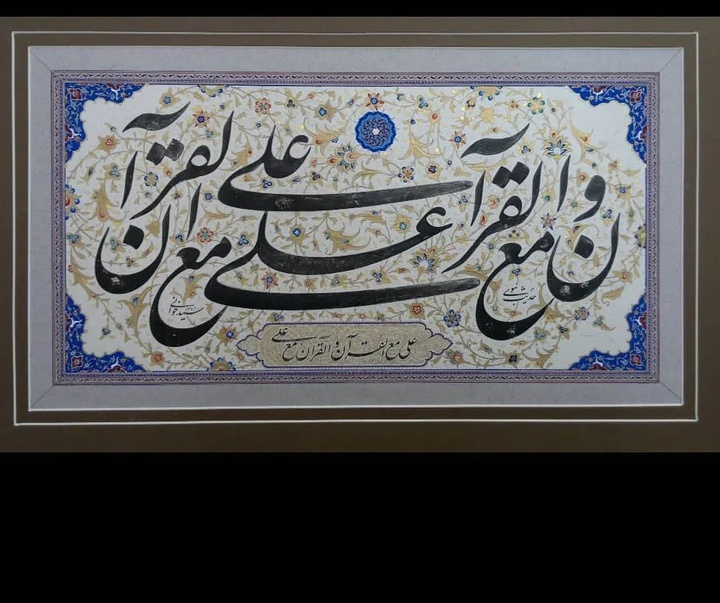 علی مع القرآن والقرآن مع علی
حدیث نبوی
علی مع القرآن والقرآن مع علی